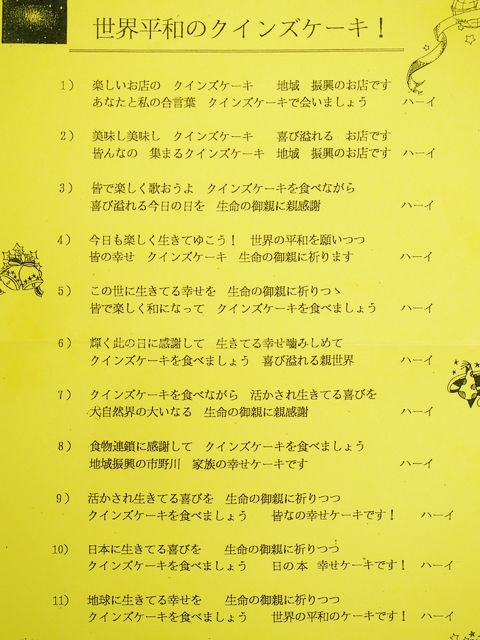 世界平和のクインズケーキ！
1） 楽しいお店の　クインズケーキ　　地域　振興のお店です
あなたと私の合言葉　クインズケーキで会いましょう　　ハーイ
2） 美味し美味し　クインズケーキ　　喜び溢れる　お店です
皆んなの　集まるクインズケーキ　地域　振興のお店です　ハーイ
3） 皆で楽しく歌おうよ　クインズケーキを食べながら
喜び溢れる今日の日を　生命の御親に親感謝　　ハーイ
4） 今日も楽しく生きてゆこう！　世界の平和を願いつつ
皆の幸せ　クインズケーキ　生命の御親に祈ります　　ハーイ
5） この世に生きてる幸せを　生命の御親に祈りつゝ
皆で楽しく和になって　クインズケーキを食べましょう　　ハーイ
6） 輝く此の日に感謝して　生きてる幸せ噛みしめて
クインズケーキを食べましょう　喜び溢れる親世界　　ハーイ
7） クインズケーキを食べながら　活かされ生きてる喜びを
大自然界の大いなる　生命の御親に親感謝　　ハーイ
8） 食物連鎖に感謝して　クインズケーキを食べましょう
地域振興の市野川　家族の幸せケーキです　　ハーイ
9） 活かされ生きてる喜びを　生命の御親に祈りつつ
クインズケーキを食べましょう　　皆なの幸せケーキです！　ハーイ
10） 日本に生きてる喜びを　　生命の御親に祈りつつ
クインズケーキを食べましょう　　日の本　幸せケーキです！　ハーイ
11） 地球に生きてる幸せを　　生命の御親に祈りつつ
クインズケーキを食べましょう　　世界の平和のケーキです！　ハーイ